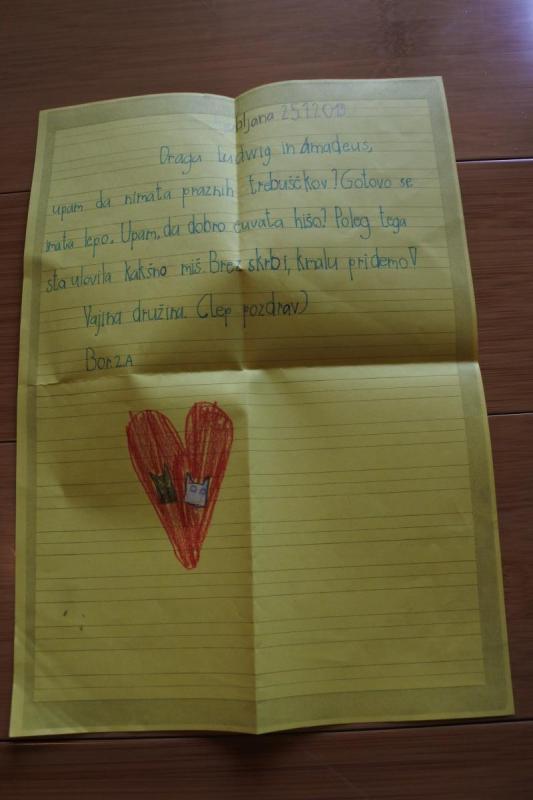 Ljubljana 25.12013
Draga Ludwig in Amadeus,
upam da nimata praznih trebuščkov? Gotovo se
imata lepo. Upam, da dobro čuvata hišo? Poleg tega
sta ulovila kakšno miš. Brez skrbi, kmalu pridemo!
Vajina družina. (lep pozdrav)